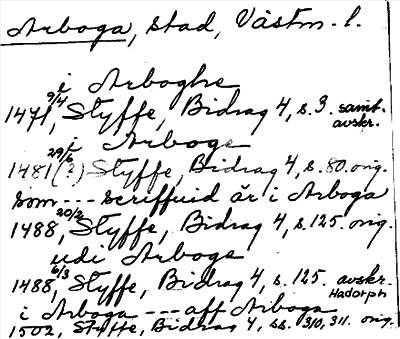 Arboga, stad, Västm. l.
i Arboghe
1471 9/4, Styffe, Bidrag 4, s. 3. samt. avskr.
i Arboge
1481(?) 29/6 Styffe, Bidrag 4, s. 80. orig.
som --- scriffuid är i Arboga
1488, 20/2 Styffe, Bidrag 4, s. 125. orig.
udi Arboge
1488, 6/3 Styffe, Bidrag 4, s. 125. avskr. Hadorph
i Arboga --- aff Arboga
1502, Styffe, Bidrag 4, ss. 310, 311. orig.